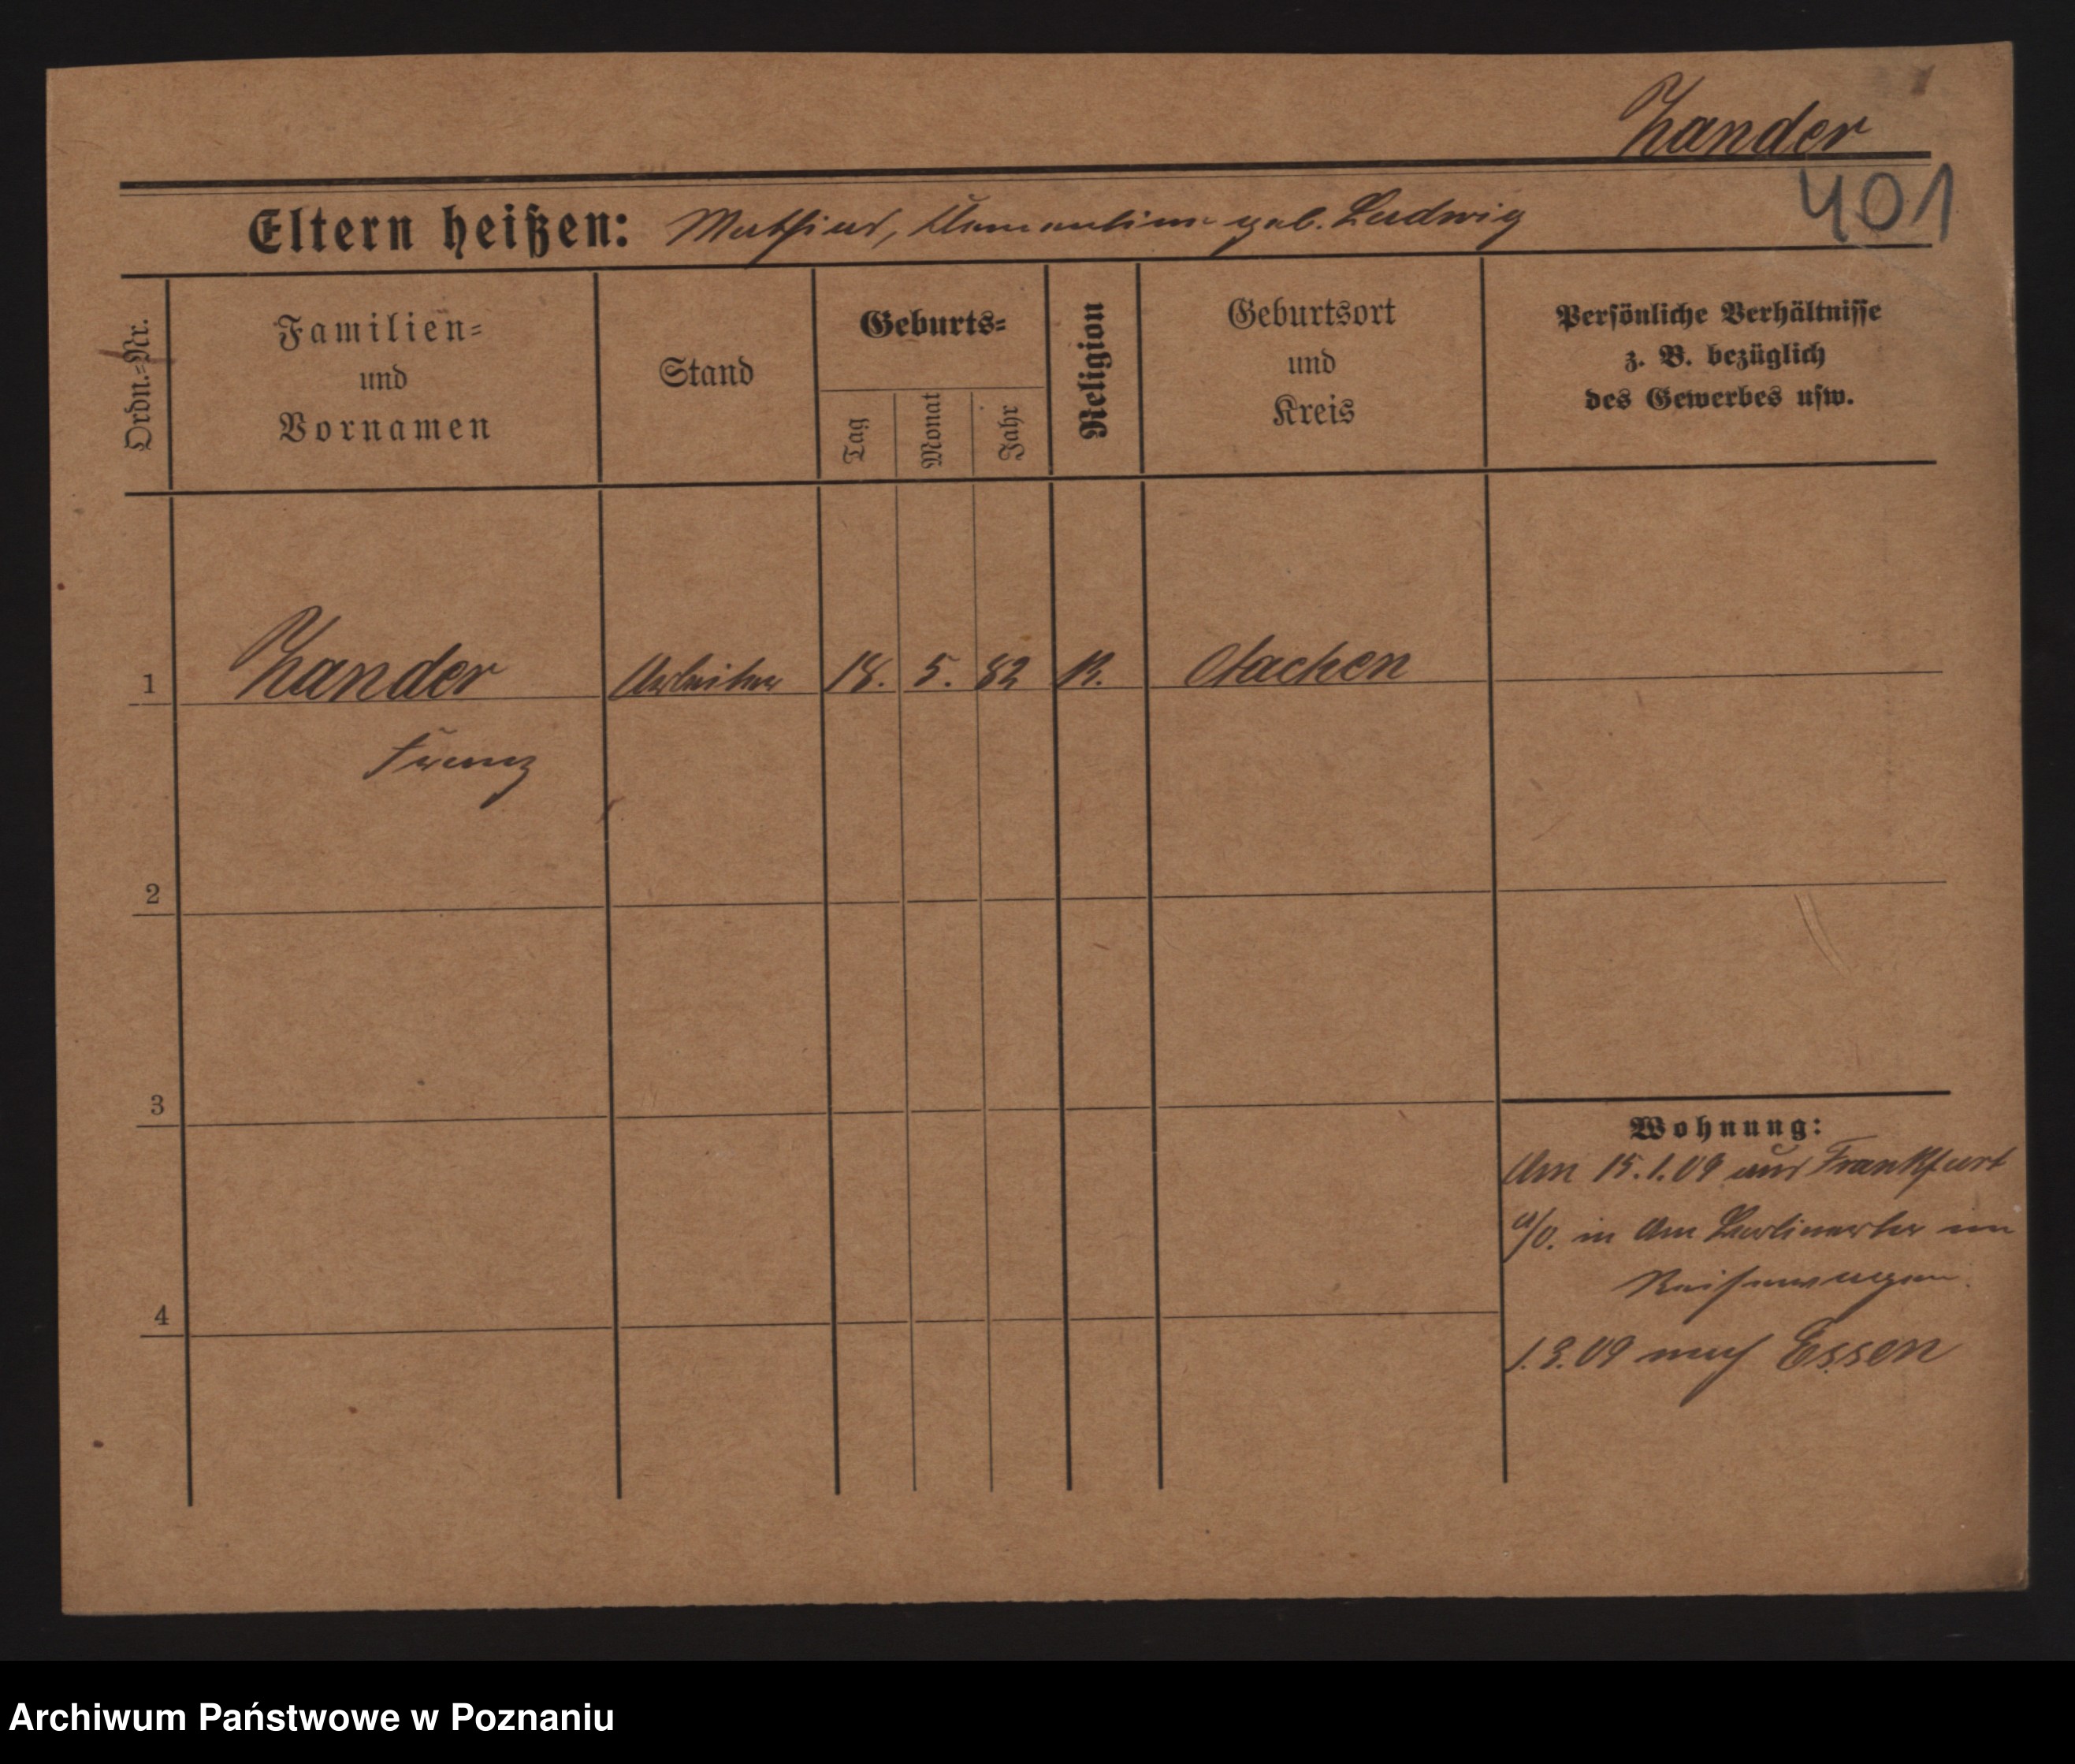 Zander
401
Eltern heißen: Mathias, Klementine geb. Ludwig
Ordn.=Nr.
Familien=
und
Vornamen
Stand
Geburts=
Tag
Monat
Jahr
Religion
Geburtsort
und
Kreis
Persönliche Verhältnisse
z. B. bezüglich
des Gewerbes usw.
1 Zander Arbeiter 18. 5. 82 K. Aachen
Franz
2
3
4
Wohnung:
Am 15.1.09 aus Frankfurt
a/O. in Am Berlinertor im
Reisewagen.
1.3.09 nach Essen
Archiwum Państwowe w Poznaniu